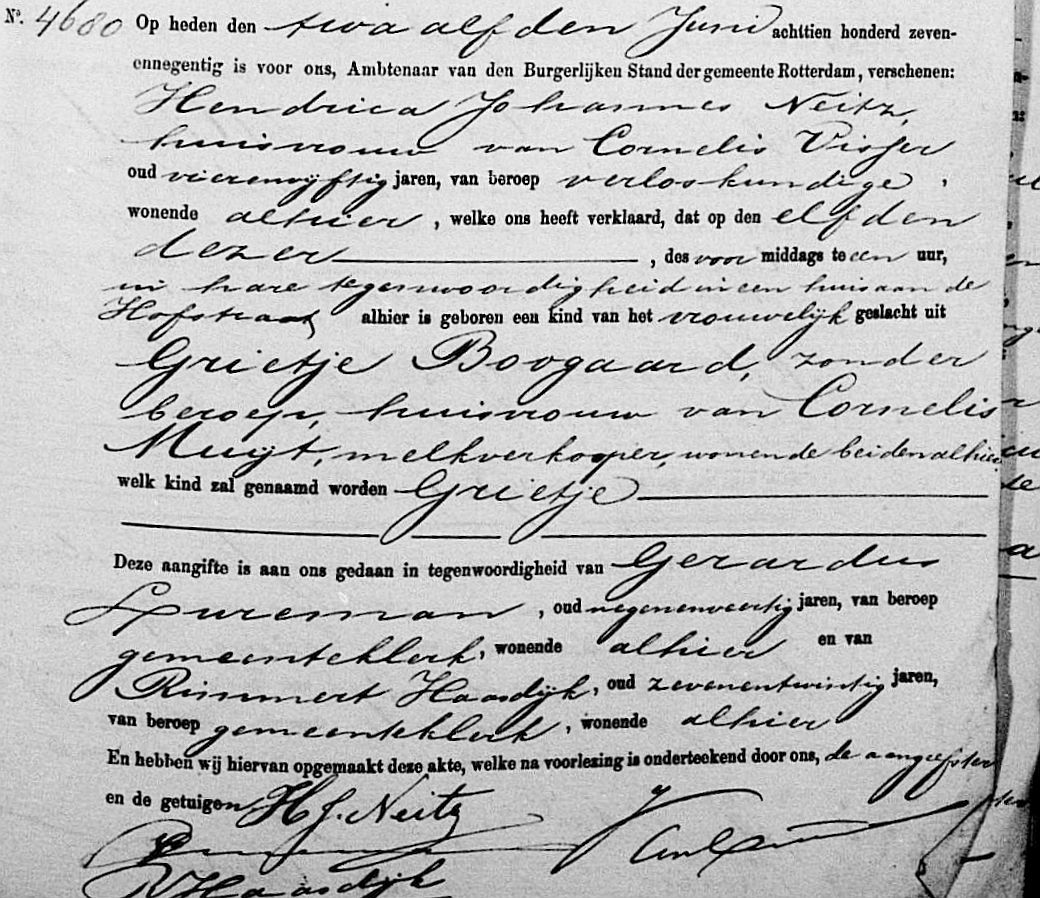 Nº. 4680 Op heden den twaalfden Juni achttien honderd zeven-
ennegentig is voor ons, Ambtenaar van den Burgerlijken Stand der gemeente Rotterdam, verschenen:
Hendrica Johannes Neitz,
huisvrouw van Cornelis Visser
oud vierenvijftig jaren, van beroep verloskundige,
wonende alhier, welke ons heeft verklaard, dat op den elfden
dezer, des voor middags te een uur,
in hare tegenwoordigheid in een huis aan de
Hofstraat alhier is geboren een kind van het vrouwelijk geslacht uit
Grietje Boogaard, zonder
beroep, huisvrouw van Cornelis
Muijt, melkverkooper, wonende beiden alhier
welk kind zal genaamd worden Grietje
Deze aangifte is aan ons gedaan in tegenwoordigheid van Gerardus
, oud negenenveertig jaren, van beroep
gemeenteklerk, wonende alhier en van
Rimmert Haasdijk, oud zevenentwintig jaren,
van beroep gemeenteklerk, wonende alhier
En hebben wij hiervan opgemaakt deze akte, welke na voorlezing is onderteekend door ons, de aangeefster
en de getuigen H J. Neitz
R Haasdijk